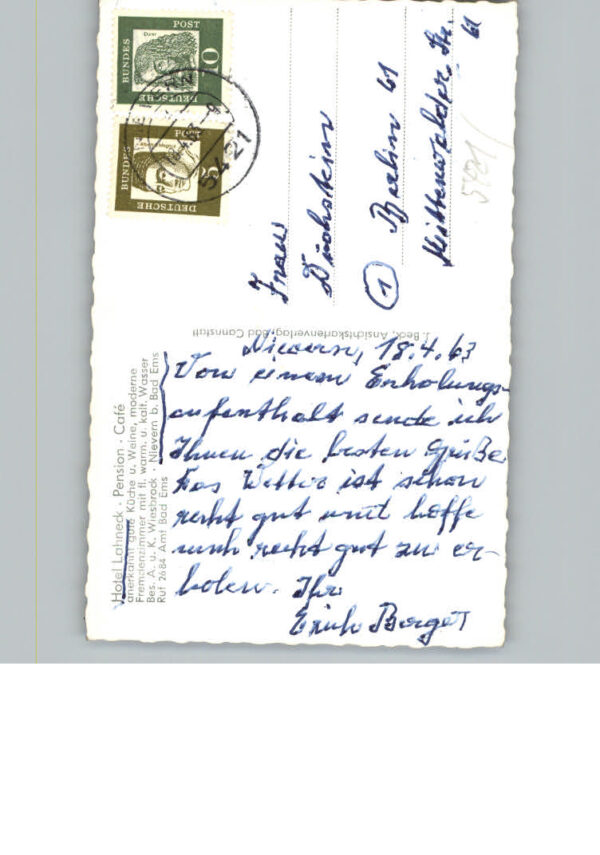 Nievern, 18.4.63
Von einem Erholungs-
aufenthalt sende ich
Ihnen die besten Grüße.
Das Wetter ist schon
recht gut und hoffe
mich recht gut zu er-
holen. Ihr
Erich
Hotel Lahneck · Pension · Café
anerkannt gute Küche u. Weine, moderne
Fremdenzimmer mit fl. warm. u. kalt. Wasser
Bes. A. u. K. Wiesbrock · Nievern b. Bad Ems
Ruf 2684 Amt Bad Ems
J. Beck, Ansichtskartenverlag, Bad Cannstatt
Frau
① Berlin 61
Mittenwalder Str.
61
DEUTSCHE BUNDES POST
10
DEUTSCHE BUNDES POST
5